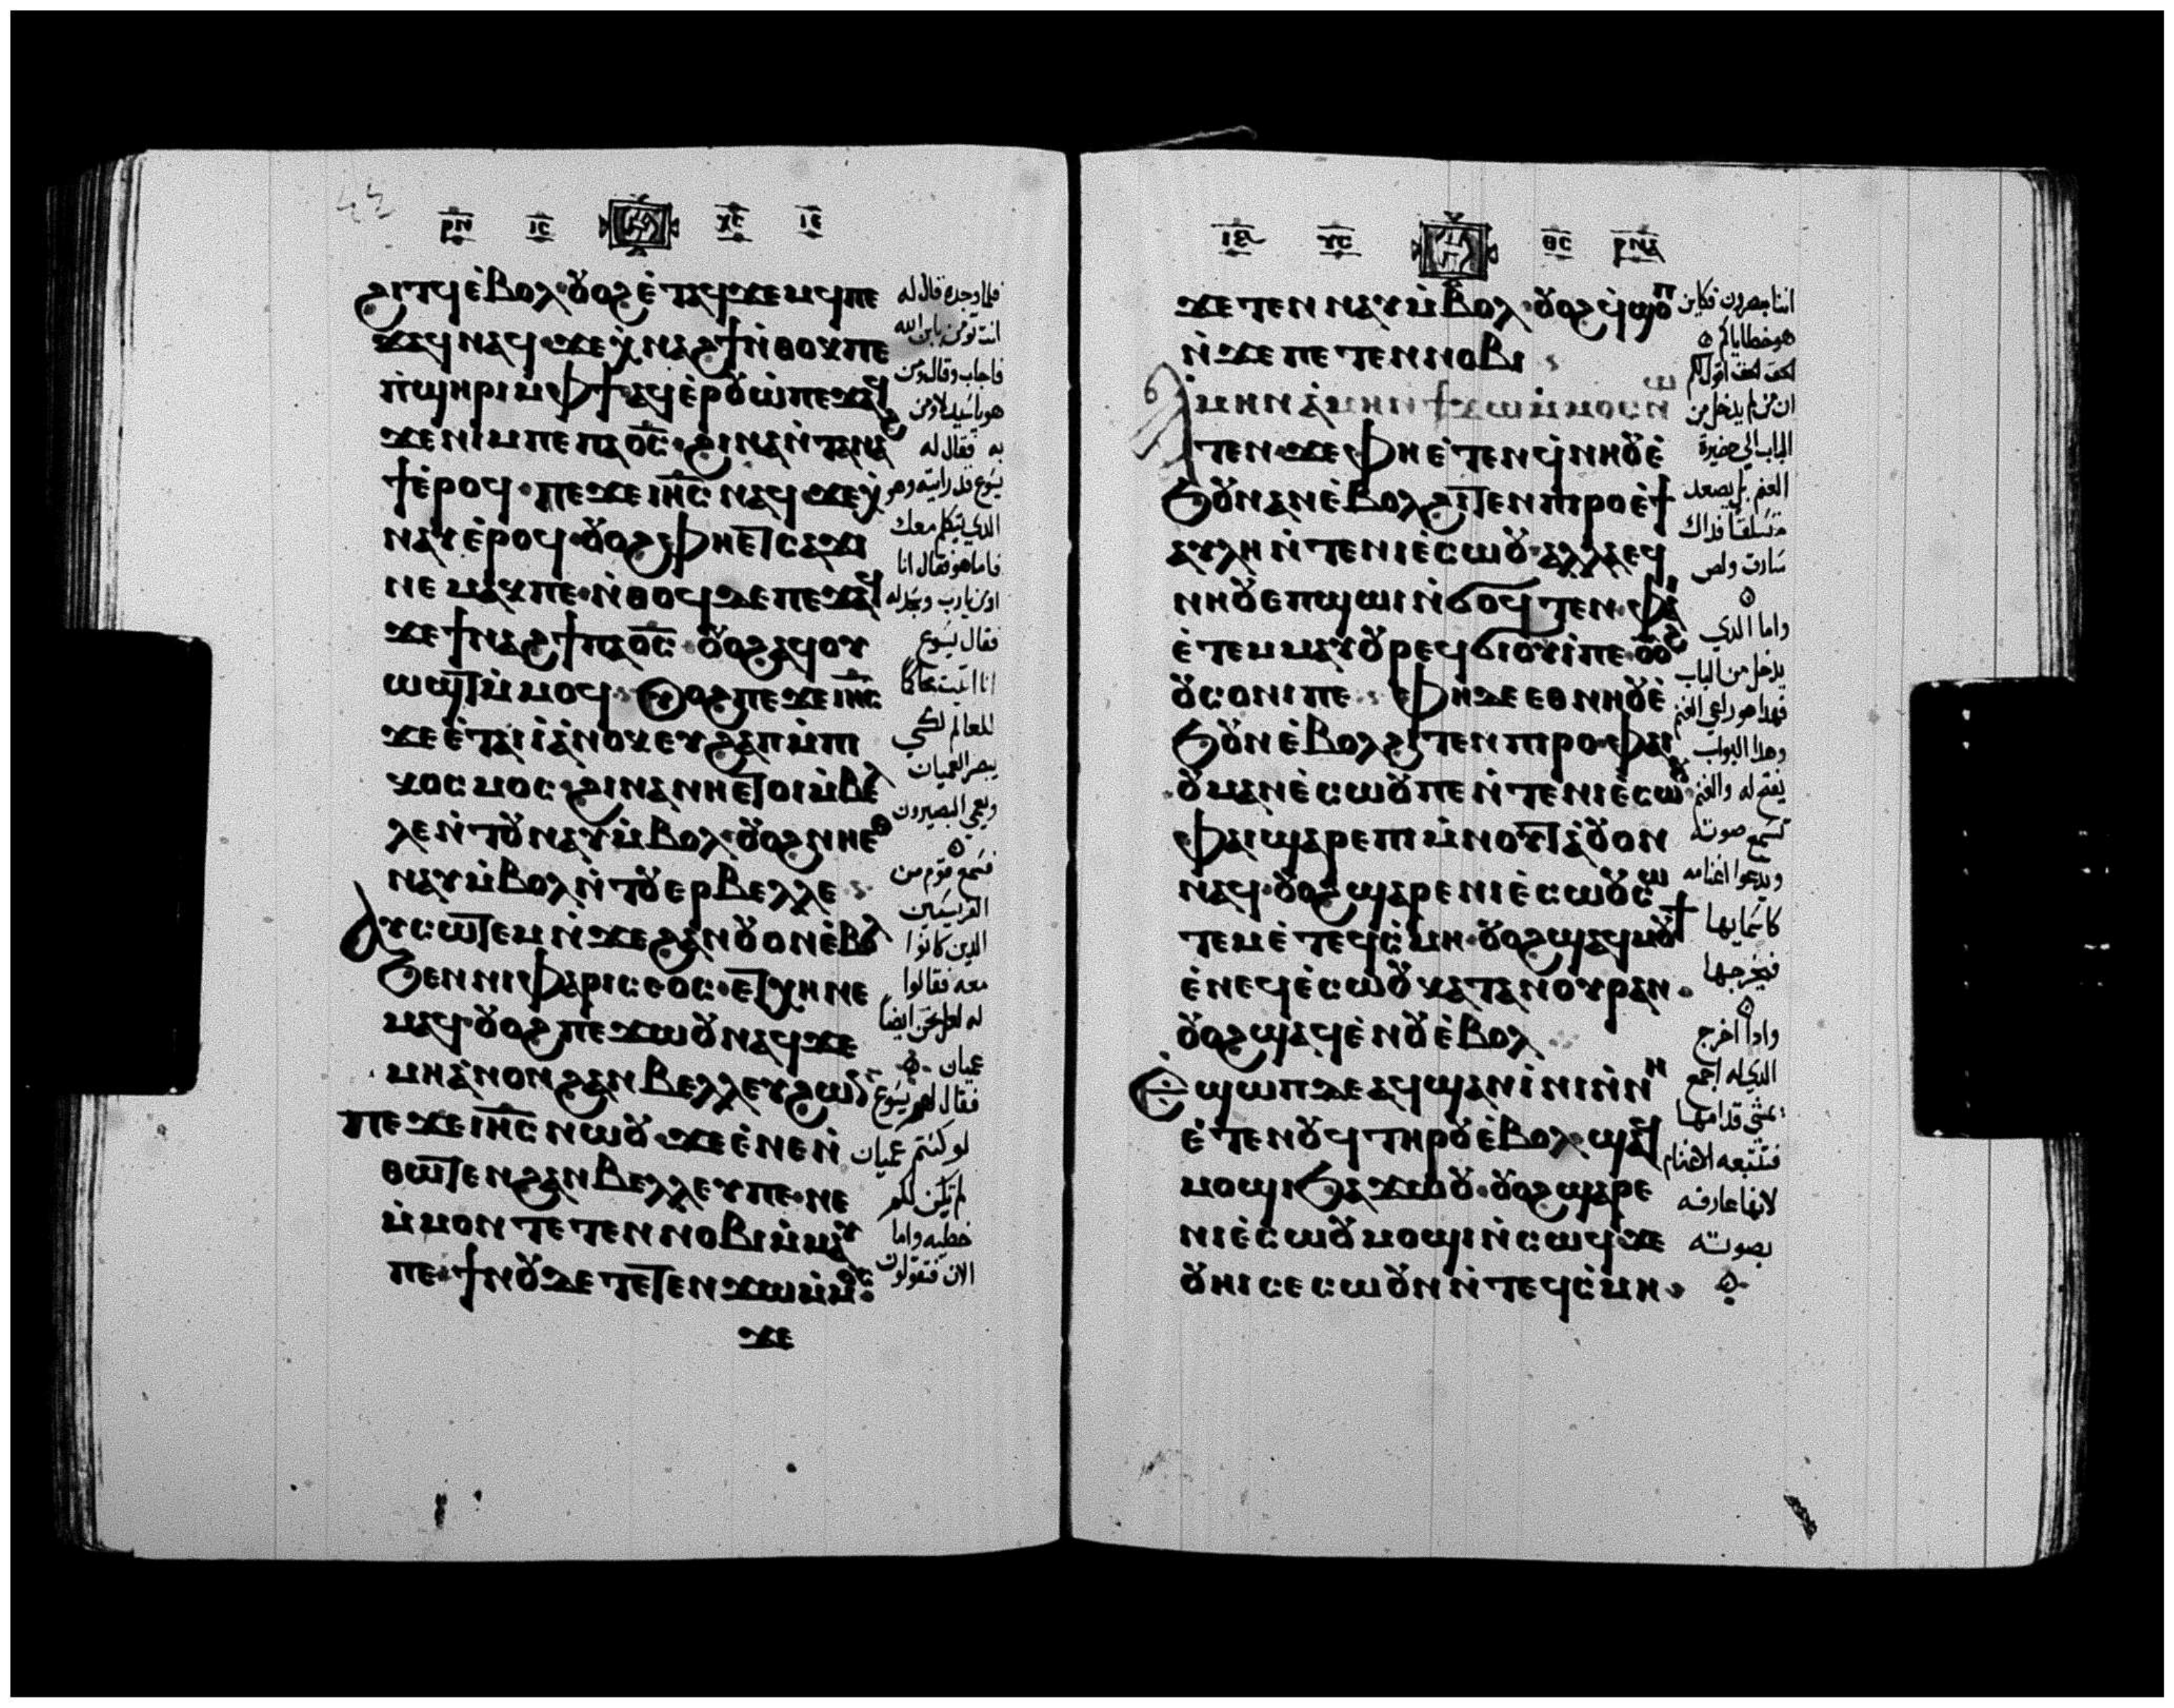 ⲣⲛ ⲓⲥ ⲭⲉ ⲓⲉ
ϩⲓⲧϥ ⲉ̀ⲃⲟⲗ · ⲟⲩⲟϩ ⲉ̀ⲧⲁϥϫⲉⲙϥ ⲡⲉ
ϫⲁϥ ⲛⲁϥ ϫⲉ ⲭ̀ⲛⲁϩϯ ⲛ̀ⲑⲟⲕ ⲡⲉ
ⲡ̀ϣⲏⲣⲓ ⲙ̀ⲫϯ ⲁϥⲉ̀ⲣⲟⲩⲱ̀ ⲡⲉϫⲁϥ
ϫⲉ ⲛⲓⲙ ⲡⲉ ⲡⲁⲟ̅ⲥ̅ · ϩⲓⲛⲁ ⲛ̀ⲧⲁⲛⲁϩ
ϯ ⲉ̀ⲣⲟϥ · ⲡⲉϫⲉ ⲓⲏ̅ⲥ̅ ⲛⲁϥ ϫⲉ ⲭ̀
ⲛⲁⲩ ⲉ̀ⲣⲟϥ · ⲟⲩⲟϩ ⲫⲏⲉⲧⲥⲁϫⲓ
ⲛⲉⲙⲁⲕ ⲡⲉ · ⲛ̀ⲑⲟϥ ⲇⲉ ⲡⲉϫⲁϥ
ϫⲉ ϯⲛⲁϩϯ ⲡⲁⲟ̅ⲥ̅ · ⲟⲩⲟϩ ⲁϥⲟⲩ
ⲱϣⲧ ⲙ̀ⲙⲟϥ · ⲟⲩⲟϩ ⲡⲉϫⲉ ⲓⲏ̅ⲥ̅
ϫⲉ ⲉ̀ⲧⲁⲓⲓ̀ ⲁ̀ⲛⲟⲕ ⲉⲩϩⲁⲡ ⲙ̀ⲡⲓ
ⲕⲟⲥⲙⲟⲥ · ϩⲓⲛⲁ ⲛⲏⲉⲧⲟⲓ ⲙ̀ⲃⲉⲗ
ⲗⲉ ⲛ̀ⲧⲟⲩⲛⲁⲩ ⲙ̀ⲃⲟⲗ · ⲟⲩⲟϩ ⲛⲏⲉⲑ
ⲛⲁⲩ ⲙ̀ⲃⲟⲗ ⲛ̀ⲧⲟⲩⲉⲣⲃⲉⲗⲗⲉ
ⲁⲩⲥⲱⲧⲉⲙ ⲛ̀ϫⲉ ϩⲁⲛⲟⲩⲟⲛ ⲉ̀ⲃⲟⲗ
ϧⲉⲛ ⲛⲓⲫⲁⲣⲓⲥⲉⲟⲥ · ⲉⲧⲭⲏ ⲛⲉ
ⲙⲁϥ · ⲟⲩⲟϩ ⲡⲉϫⲱⲟⲩ ⲛⲁϥ ϫⲉ
ⲙⲏ ⲁ̀ⲛⲟⲛ ϩⲁⲛⲃⲉⲗⲗⲉⲩ ϩⲱⲛ
ⲡⲉϫⲉ ⲓⲏ̅ⲥ̅ ⲛⲱⲟⲩ ϫⲉ ⲉ̀ⲛⲉ ⲛ̀
ⲑⲱⲧⲉⲛ ϩⲁⲛⲃⲉⲗⲗⲉⲩ ⲡⲉ · ⲛⲉ
ⲙ̀ⲙⲟⲛ ⲧⲉⲧⲉⲛⲛⲟⲃⲓ ⲙ̀ⲙⲁⲩ
ⲡⲉ · ϯⲛⲟⲩ ⲇⲉ ⲧⲉⲧⲉⲛϫⲱ ⲙ̀ⲙⲟⲥ
ϫⲉ
فلما وجده قال له
انت تومن بابن الله
فاجاب وقال ومن
هو ياسيد لاومن
به فقال له
يسوع قد رايته وهو
الذي يتكلم معك
فاما هو فقال انا
اومن يارب وسجد له
فقال يسوع
انا اتيت حاكما
للعالم لكي
يبصر العميان
ويعمي المبصرون
فسمع قوم من
الفريسيين
الذين كانوا
معه فقالوا
له لعل نحن ايضا
عميان
فقال لهم يسوع
لو كنتم عميان
لم تكن لكم
خطيه واما
الان فتقولون
ⲓⲉ ⲩⲥ ⲑⲥ ⲣⲛⲁ
ϫⲉ ⲧⲉⲛⲛⲁⲩ ⲙ̀ⲃⲟⲗ · ⲟⲩⲟϩ ϥ̀ϣⲟⲡ
ⲛ̀ϫⲉ ⲡⲉⲧⲉⲛⲛⲟⲃⲓ
ⲁ̀ⲙⲏⲛ ⲁ̀ⲙⲏⲛ ϯϫⲱ ⲙ̀ⲙⲟⲥ ⲛⲱ
ⲧⲉⲛ · ϫⲉ ⲫⲏⲉ̀ⲧⲉⲛϥ̀ⲛⲏⲟⲩ ⲉ̀
ϧⲟⲩⲛ ⲁⲛ ⲉ̀ⲃⲟⲗ ϩⲓⲧⲉⲛ ⲡⲓⲣⲟ ⲉ̀ϯ
ⲁⲩⲗⲏ ⲛ̀ⲧⲉ ⲛⲓⲉ̀ⲥⲱⲟⲩ · ⲁⲗⲗⲁ ⲉϥ
ⲛⲏⲟⲩ ⲉⲡϣⲱⲓ ⲛ̀ϭⲟϥⲧⲉⲛ · ⲫⲏ
ⲉ̀ⲧⲉⲙⲙⲁⲩ ⲟⲩⲣⲉϥϭⲓⲟⲩⲓ̀ ⲡⲉ · ⲟⲩⲟϩ
ⲟⲩⲥⲟⲛⲓ ⲡⲉ · ⲫⲏ ⲇⲉ ⲉⲑⲛⲏⲟⲩ ⲉ̀
ϧⲟⲩⲛ ⲉ̀ⲃⲟⲗ ϩⲓⲧⲉⲛ ⲡⲓⲣⲟ · ⲫⲁⲓ
ⲟⲩⲙⲁⲛⲉ̀ⲥⲱⲟⲩ ⲡⲉ ⲛ̀ⲧⲉ ⲛⲓⲉ̀ⲥⲱⲟⲩ
ⲫⲁⲓ ϣⲁⲣⲉ ⲡⲓⲙ̀ⲛⲟⲩⲧ ⲁ̀ⲟⲩⲟⲛ
ⲛⲁϥ · ⲟⲩⲟϩ ϣⲁⲣⲉ ⲛⲓⲉ̀ⲥⲱⲟⲩ ⲥⲱ
ⲧⲉⲙ ⲉ̀ⲧⲉϥⲥ̀ⲙⲏ · ⲟⲩⲟϩ ϣⲁϥⲙⲟⲩϯ
ⲉ̀ⲛⲉϥⲉ̀ⲥⲱⲟⲩ ⲕⲁⲧⲁ ⲛⲟⲩⲣⲁⲛ ·
ⲟⲩⲟϩ ϣⲁϥⲉ̀ⲛⲟⲩ ⲉ̀ⲃⲟⲗ
ⲉ̀ϣⲱⲡ ⲇⲉ ⲁϥϣⲁⲛⲓ̀ⲛⲓ ⲛ̀ⲛⲏ
ⲉ̀ⲧⲉⲛⲟⲩϥ ⲧⲏⲣⲟⲩ ⲉ̀ⲃⲟⲗ · ϣⲁϥ
ⲙⲟϣⲓ ϧⲁϫⲱⲟⲩ · ⲟⲩⲟϩ ϣⲁⲣⲉ
ⲛⲓⲉ̀ⲥⲱⲟⲩ ⲙⲟϣⲓ ⲛ̀ⲥⲱϥ ϫⲉ
ⲟⲩⲏⲓ ⲥⲉⲥⲱⲟⲩⲛ ⲛ̀ⲧⲉϥⲥ̀ⲙⲏ ·
اننا مبصرون فكاين
هو خطاياكم
الحق الحق اقول لكم
ان من لم يدخل من
الباب الي حضيرة
الغنم بل يصعد
متسلقا فذاك
سارق ولص
واما الذي
يدخل من الباب
فهذا هو راعي الغنم
وهذا البواب
يفتح له والغنم
تسمع صوته
ويدعوا اغنامه
كاسمايها
فيخرجها
واذا اخرج
الذي له اجمع
يمشي قدامها
فتتبعه الاغنام
لانها عارفه
بصوته